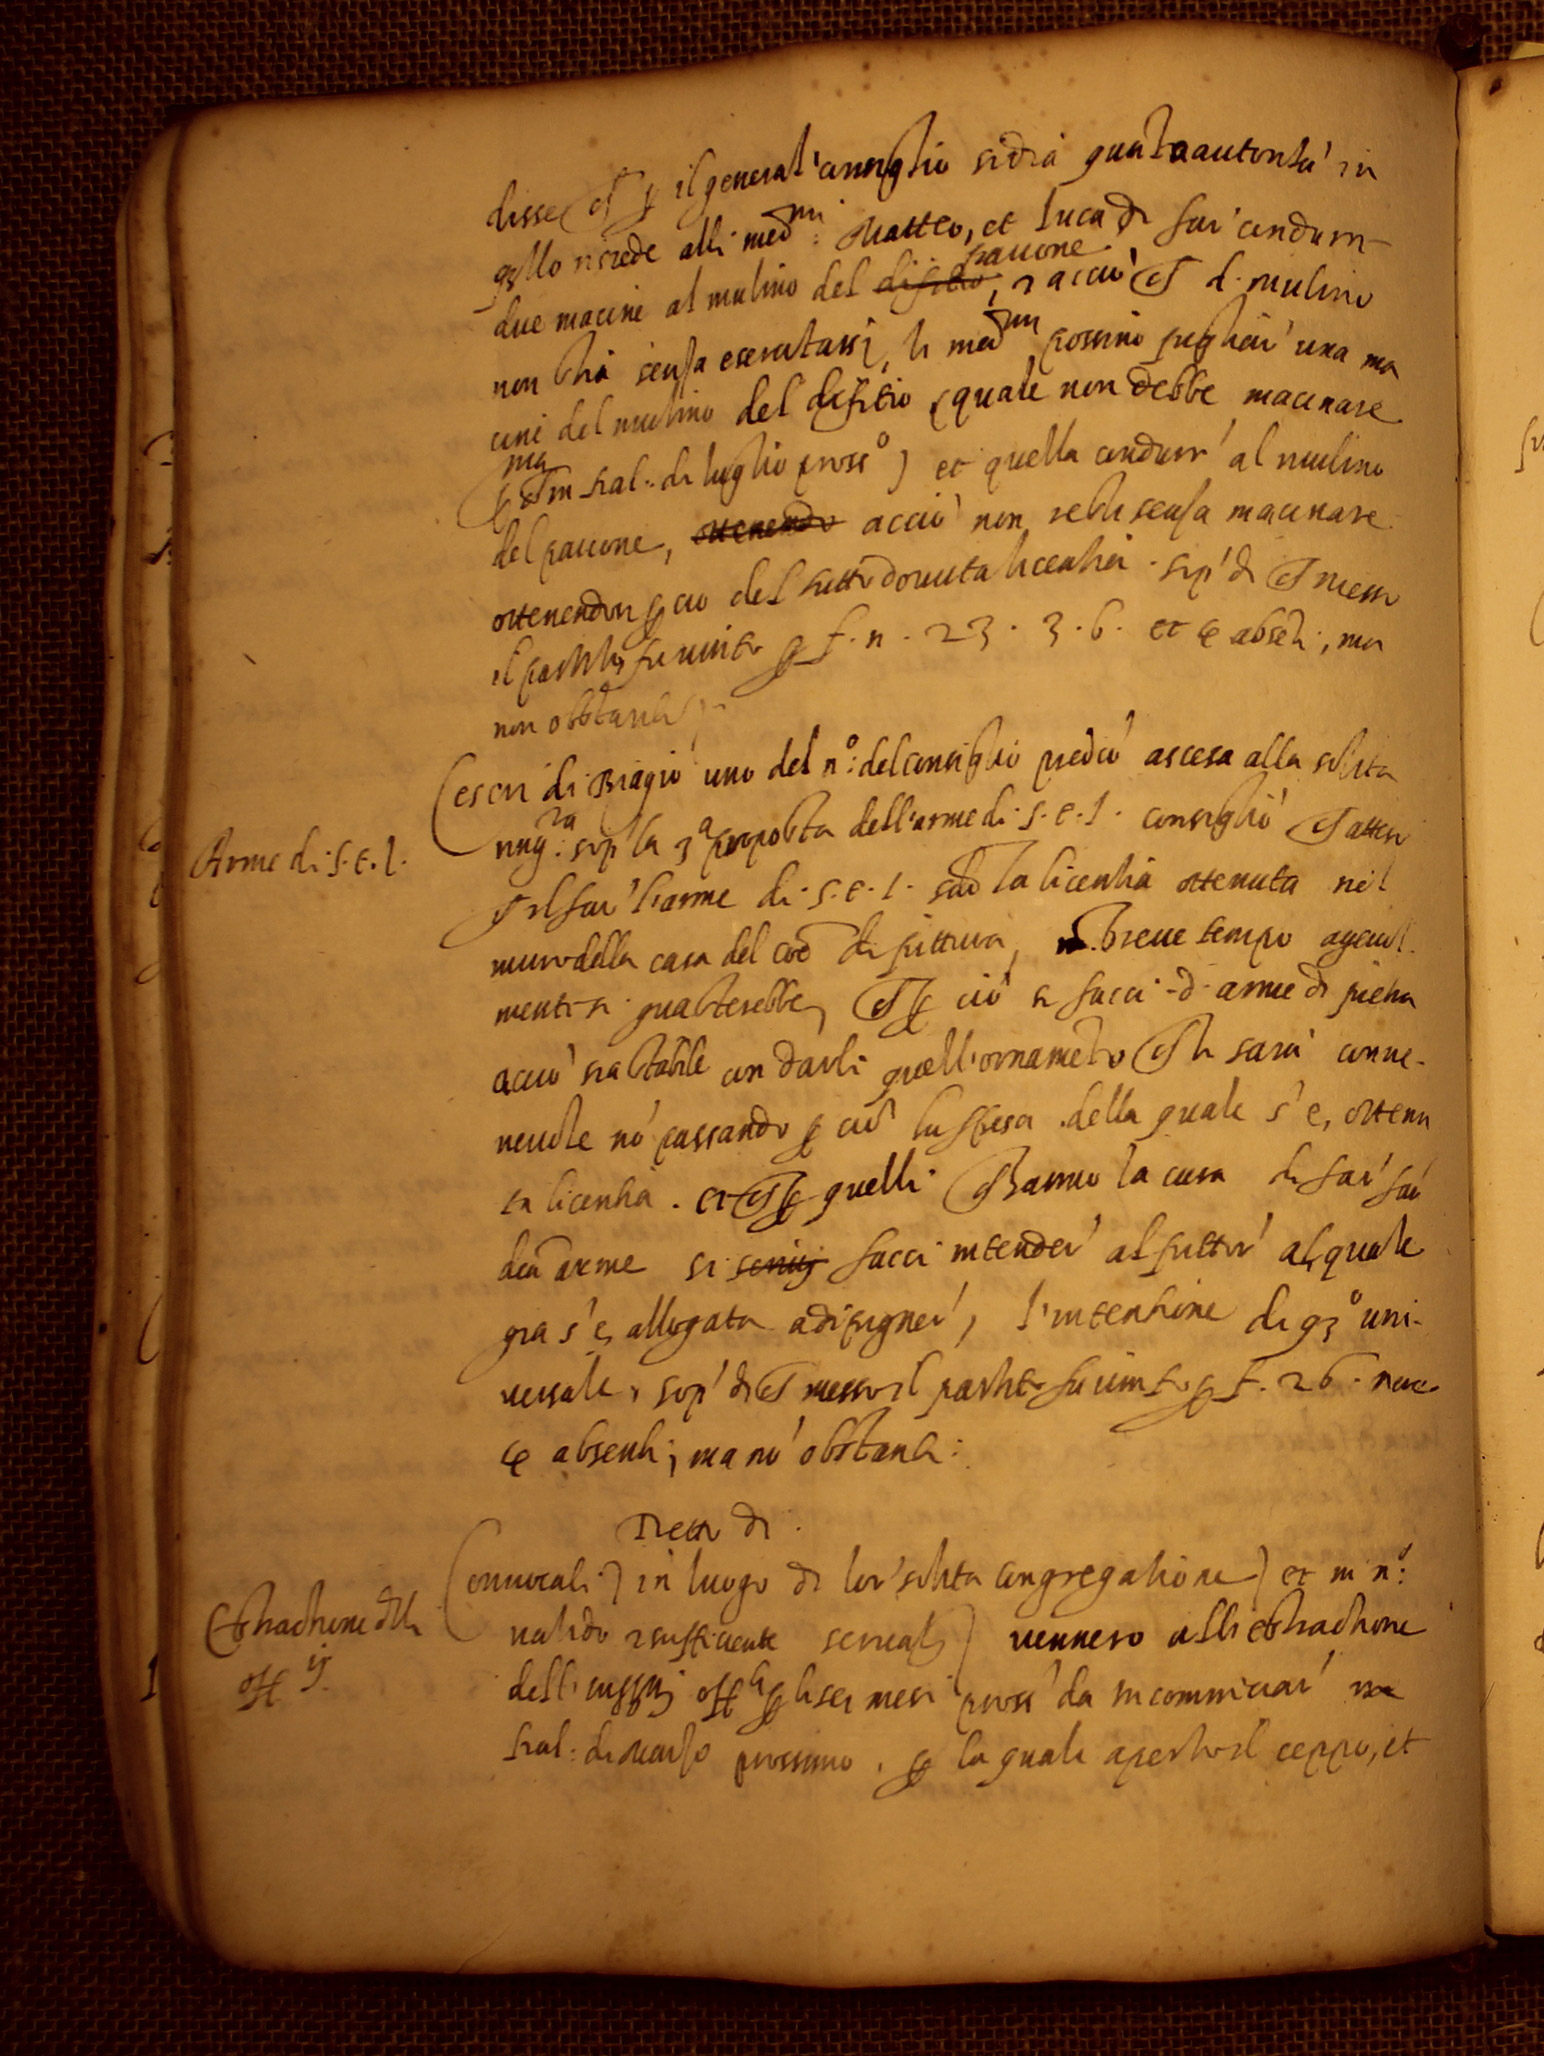 disse che per il general' consiglio si dia quest'autorità in
q̃llo risiede alli med.mi Matteo, et Luca di far' condurre
due macine al mulino del difitio pavone, 2 acciò che d. mulino
non stia senza esercitarsi, li med.mi possino pigliar' una ma
cine del mulino del difitio (quale non debbe macinare
p.ma che in kal: di luglio pross.o) et quella condurr' al mulino
del pavone, ottenendo acciò non resti senza macinare
ottenendosi per ciò del tutto dovuta licentia. sop' di che messo
il partito fu vinto per f. n. 23. 3. 6. et 4 absẽti, ma
non ostanti
Arme di. S. E. I.
Cescu di Biagio uno del n.o del consiglio predco' ascesa alla solita
ring.ra sop' la 3.a proposta dell'arme di. S. E. I. consigliò che atteso
che il far' l'arme di. S. E. I. scd̃o la licentia ottenuta nel
muro della casa del coẽ di pittura, in breve tempo agevol
mente si guasterebbe, che per ciò si facci d. arme di pietra
acciò sia stabile con darli quell'ornamẽto che li sarà conve-
nevole nõ passando per ciò la spesa della quale s'è, ottenu
ta licentia. et che per quelli che hanno la cura di far' far'
dca arme si facci intender' al pittor' al quale
gia s'è, allogata a dipigner', l'intentione di q3.o uni-
versale, sop' di che messo il partito fu vinto per f. 26. nere
4 absenti; ma nõ ostanti:
Detto di.
Estractione delli
off.ij
Convocati) in luogo di lor' solita congregatione) et in n.o
valido 2 sufficiente servatis) vennero alli estractione
delli off.li per li sei mesi pross' da incominciar' in
kal: di Marzo prossimo, per la quale aperto il ceppo, et